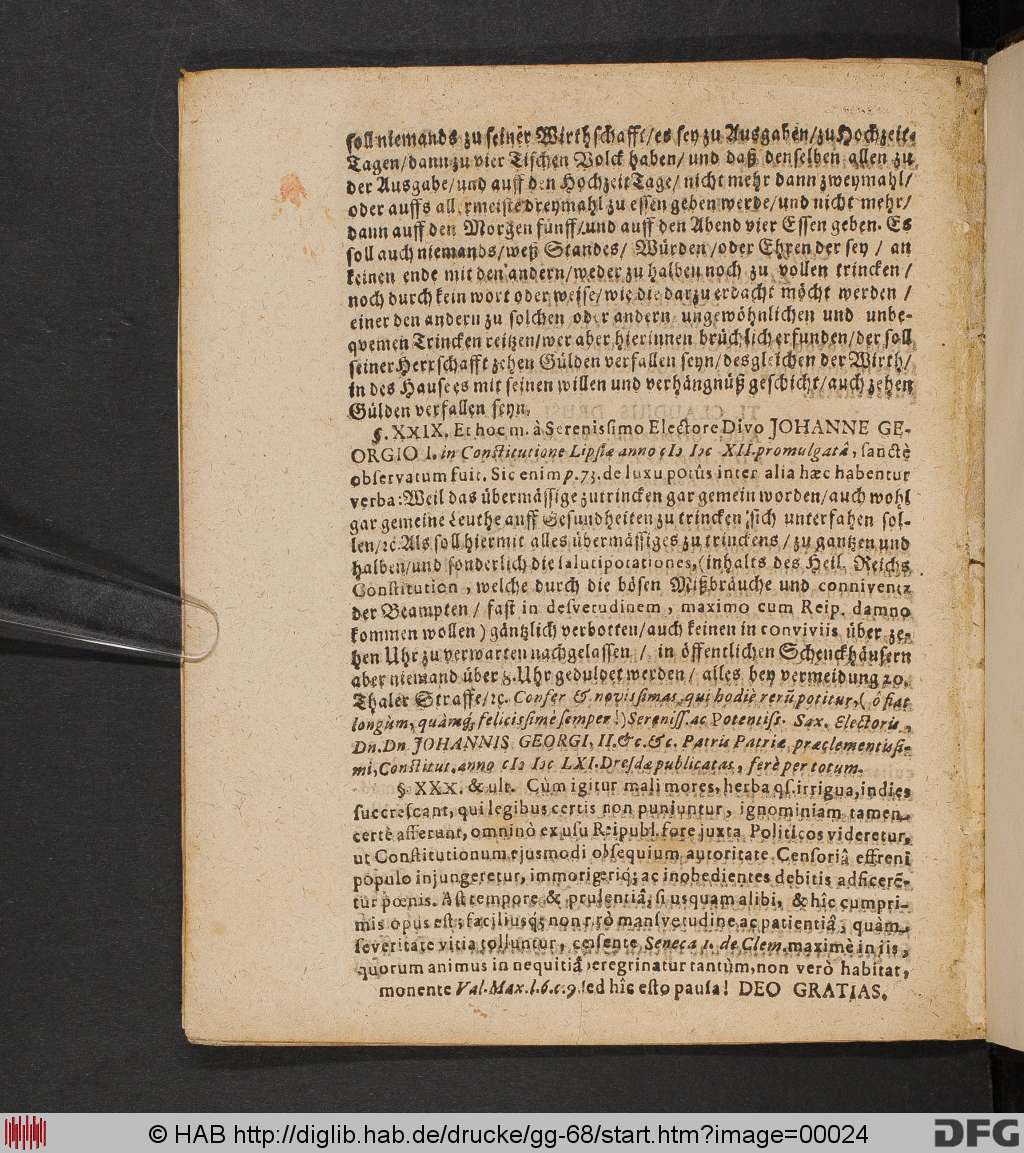 soll niemands zu seiner Wirthschafft/es sey zu Ausgaben/zu Hochzeit-
Tagen/dann zu vier Tischen Volck haben/ und daß denselben allen zu
der Ausgabe/und auff den Hochzeit Tage/ nicht mehr dann zweymahl/
oder auffs allermeiste dreymahl zu essen geben werde/und nicht mehr/
dann auff den Morgen fünff/und auff den Abend vier Essen geben. Es
soll auch niemands/weß Standes/ Würden/oder Ehren der sey / an
keinen ende mit den andern/weder zu halben noch zu vollen trincken /
noch durch kein wort oder weise/wie die darzu erdacht möcht werden /
einer den andern zu solchen oder andern ungewöhnlichen und unbe-
qvemen Trincken reitzen/wer aber hierinnen brüchlich erfunden/der soll
seiner Herrschafft zehen Gülden verfallen seyn/desgleichen der Wirth/
in des Hause es mit seinen willen und verhängnüß geschicht/auch zehen
Gülden verfallen seyn.
§. XXIX. Et hoc m. à Serenissimo Electore Divo JOHANNE GE-
ORGIO I. in Constitutione Lipsiæ anno cIↄ Iↄc XII. promulgatâ, sanctè
observatum fuit. Sic enim p. 73. de luxu potûs inter alia hæc habentur
verba: Weil das übermässige zutrincken gar gemein worden/auch wohl
gar gemeine Leuthe auff Gesundheiten zu trincken sich unterfahen sol-
len/ꝛc. Als soll hiermit alles übermässiges zu trinckens / zu gantzen und
halben/und sonderlich die salutipotationes, (inhalts des Heil. Reichs
Constitution, welche durch die bösen Mißbräuche und conniventz
der Beampten / fast in desvetudinem, maximo cum Reip. damno
kommen wollen) gäntzlich verbotten/auch keinen in conviviis über ze-
hen Uhr zu verwarten nachgelassen / in öffentlichen Schenckhäusern
aber niemand über 8. Uhr geduldet werden/ alles bey vermeidung 20.
Thaler Straffe/ꝛc. Confer & novissimas, qui hodiè rerũ potitur, (ô fiat
longùm, quàmq; felicissimè semper!) Sereniss. ac Potentiss. Sax. Electoris,
Dn. Dn JOHANNIS GEORGI, II. &c. &c. Patris Patriæ præclementissi-
mi, Constitut. anno cIↄ Iↄc LXI. Dresdæ publicatas, ferè per totum.
§ XXX. & ult. Cùm igitur mali mores, herba qs. irrigua, indies
succrescant, qui legibus certis non puniuntur, ignominiam tamen
certè afferunt, omninò ex usu Reipubl. fore juxta Politicos videretur,
ut Constitutionum ejusmodi obsequium autoritate Censoriâ effreni
populo injungeretur, immorigeriq; ac inobedientes debitis adficerẽ-
tur pœnis. Ast tempore & prudentiâ, si usquam alibi, & hîc cumpri-
mis opus est; faciliusq; non rarò mansvetudine ac patientiâ, quàm
severitate vitia tolluntur, censente Seneca 1. de Clem. maximè in iis,
quorum animus in nequitiâ peregrinatur tantùm, non verò habitat,
monente Val. Max. l. 6. c. 9. sed hîc esto pausa! DEO GRATIAS.
© HAB http://diglib.hab.de/drucke/gg-68/start.htm?image=00024
DFG